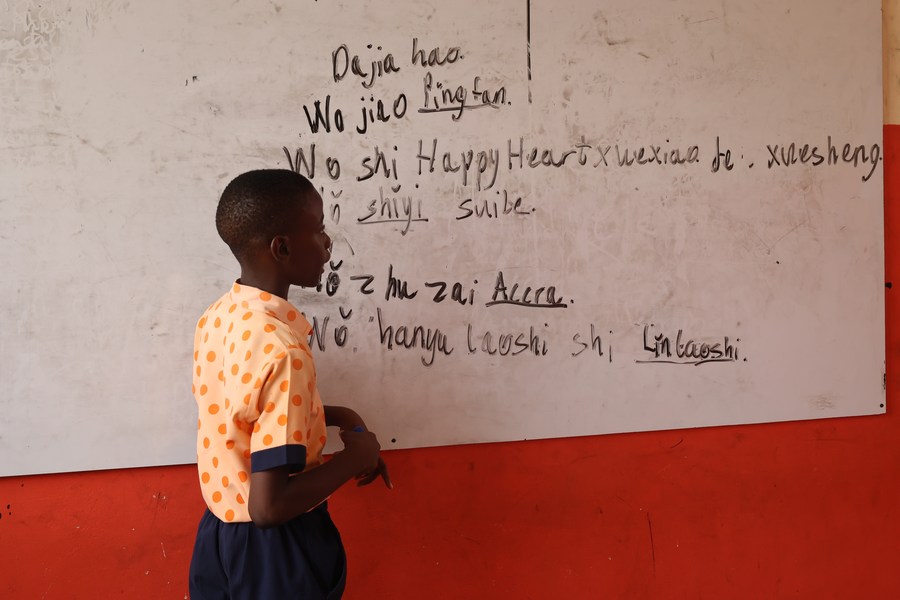 Dajia hao.
Wo jiao Pingfan.
Wo shi Happy Heart xuexiao de xuesheng.
shiyi suile.
zhu zai Accra.
Wǒ hanyu laoshi shi Linlaoshi.